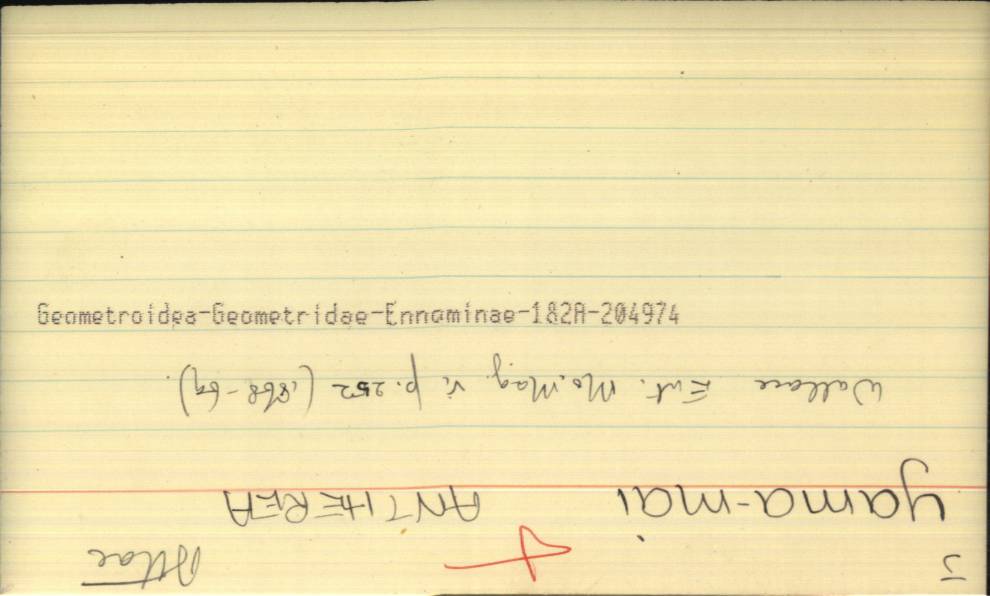 J Attac
yama-mai ANTHEREA
Wallace Ent. Mo. Mag. V. p. 252 (1868-69).
Geometroidea-Geometridae-Ennominae-182A-204974